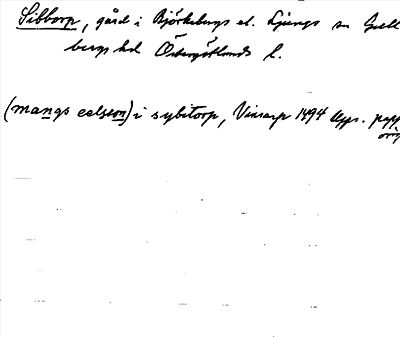 Sibborp, gård i Björkebergs el. Ljungs sn Gull
bergs hd Östergötlands l.
(mangs eelsson) i sybitorp, Vinarp 1494 Upps. papp
orig